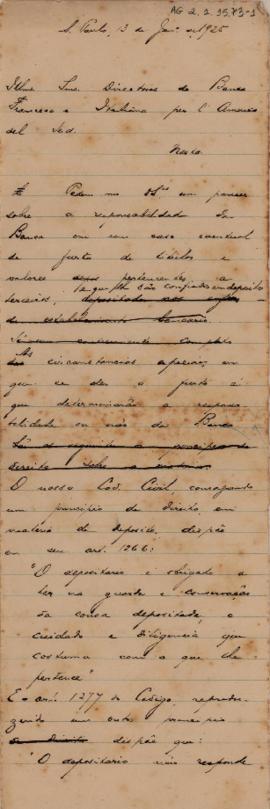 AG 2.2.15.73-1
S. Paulo, 13 de Jan. de 1925
Illmos Snrs. Directores do Banco
Francese e Italiana per l'America
del Sud.
Nesta
Pedem me VVSas um parecer
sobre a responsabilidade do
Banco em um caso eventual
de furto de titulos e
valores pertencentes a
terceiros, que lhe são confiados em deposito
As circunstancias especiaes em
que se der o furto é
que determinarão a responsa-
bilidade ou não do Banco
O nosso Cod. Civil, consagrando
um principio de direito, em
materia de deposito, dispõe
em seu art. 1266:
"O depositario é obrigado a
ter na guarda e conservação
da cousa depositada o
cuidado e diligencia que
costuma com o que lhe
pertence"
E o art. 1277 do Codigo, reprodu-
zindo um outro principio
de direito dispõe que:
"O depositario não responde